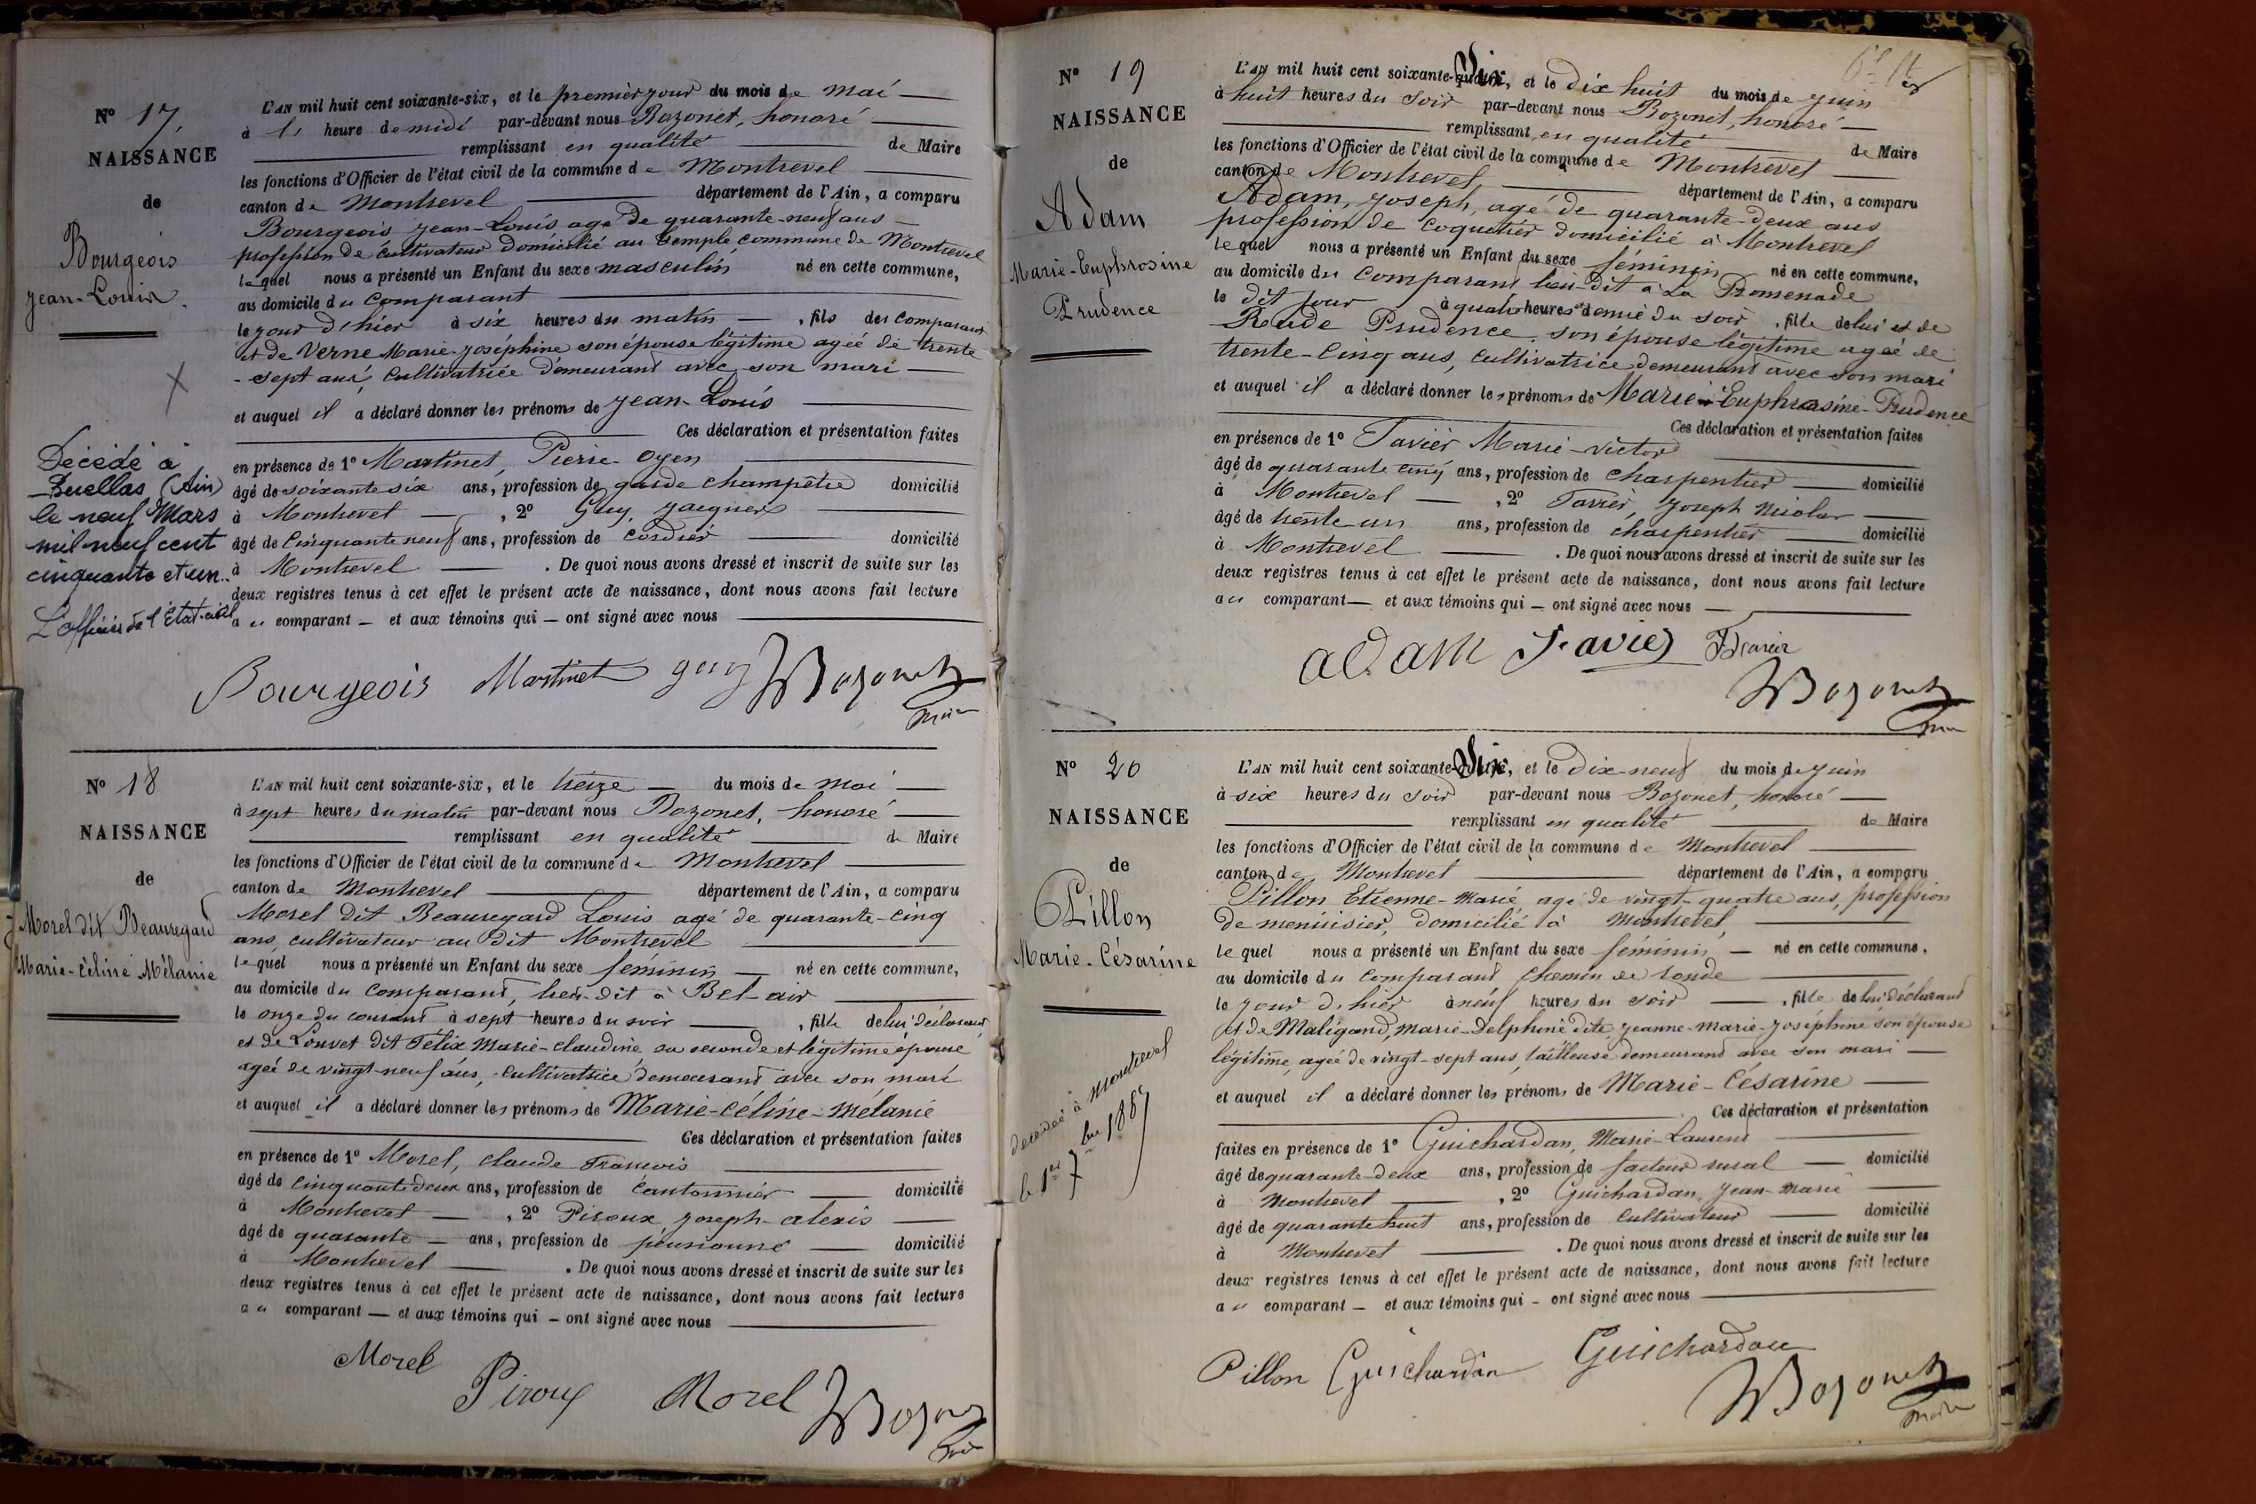 N° 17.
NAISSANCE
de
Bourgeois
Jean-Louis.
Décédé à
Buellas (Ain)
le neuf Mars
mil neuf cent
cinquante et un.
L'officier de l'Etat-civil
L'AN mil huit cent soixante-six, et le premier jour du mois de mai
à heure de midi par-devant nous Bozonet, honoré
remplissant en qualité de Maire
les fonctions d'Officier de l'état civil de la commune de Montrevel
canton de Montrevel département de l'Ain, a comparu
Bourgeois jean-Louis agé de quarante-neuf ans
profession de cultivateur domicilié au temple commune de Montrevel
lequel nous a présenté un Enfant du sexe masculin né en cette commune,
au domicile du comparant
le jour d'hier à six heures du matin, fils des comparant
et de Verne Marie-joséphine son épouse légitime agée de trente
-sept ans, cultivatrice demeurant avec son mari
et auquel il a déclaré donner les prénoms de jean-Louis
Ces déclaration et présentation faites
en présence de 1° Martinet, Pierre-Oyen
âgé de soixante six ans, profession de garde champêtre domicilié
à Montrevel, 2° Guy,
âgé de cinquante neuf ans, profession de cordier domicilié
à Montrevel. De quoi nous avons dressé et inscrit de suite sur les
deux registres tenus à cet effet le présent acte de naissance, dont nous avons fait lecture
au comparant — et aux témoins qui — ont signé avec nous
Bourgeois Martinet guy Bozonet
maire
N° 18
NAISSANCE
de
Morel dit Beauregard
Marie-Céline Mélanie
L'AN mil huit cent soixante-six, et le treize du mois de mai
à sept heures du matin par-devant nous Bozonet, honoré
remplissant en qualité de Maire
les fonctions d'Officier de l'état civil de la commune de Montrevel
canton de Montrevel département de l'Ain, a comparu
Morel dit Beauregard Louis agé de quarante-cinq
ans cultivateur au dit Montrevel
lequel nous a présenté un Enfant du sexe féminin né en cette commune,
au domicile du comparant, lieu-dit à Bel-air
le onze du courant à sept heures du soir, fille de lui déclarant
et de Louvet dit Félix Marie-claudine sa seconde et légitime épouse
agée de vingt-neuf ans, cultivatrice demeurant avec son mari
et auquel il a déclaré donner les prénoms de Marie-céline-mélanie
Ces déclaration et présentation faites
en présence de 1° Morel, claude-François
âgé de cinquante deux ans, profession de cantonnier domicilié
à Montrevel, 2° Piroux joseph-alexis
âgé de quarante ans, profession de pensionné domicilié
à Montrevel. De quoi nous avons dressé et inscrit de suite sur les
deux registres tenus à cet effet le présent acte de naissance, dont nous avons fait lecture
au comparant — et aux témoins qui — ont signé avec nous
Morel Piroux Morel Bozonet
maire
N° 19
NAISSANCE
de
Adam
Marie-Euphrosine
Prudence
L'AN mil huit cent soixante-Six, et le dix huit du mois de juin
à huit heures du soir par-devant nous Bozonet, honoré
remplissant en qualité de Maire
les fonctions d'Officier de l'état civil de la commune de Montrevel
canton de Montrevel, département de l'Ain, a comparu
Adam, joseph, agé de quarante-deux ans
profession de coquetier domicilié à Montrevel
lequel nous a présenté un Enfant du sexe féminin né en cette commune,
au domicile du comparant lieu-dit à La Promenade
le dit jour à quatre heures et demie du soir, fille de lui et de
Rude Prudence, son épouse légitime agée de
trente-cinq ans, cultivatrice demeurant avec son mari
et auquel il a déclaré donner les prénoms de Marie-Euphrosine-Prudence
Ces déclaration et présentation faites
en présence de 1° Tavier Marie-victor
âgé de quarante cinq ans, profession de charpentier domicilié
à Montrevel, 2° Tavier, joseph nicolas
âgé de trente un ans, profession de charpentier domicilié
à Montrevel. De quoi nous avons dressé et inscrit de suite sur les
deux registres tenus à cet effet le présent acte de naissance, dont nous avons fait lecture
au comparant — et aux témoins qui — ont signé avec nous
adam Tavier Tavier
Bozonet
maire
N° 20
NAISSANCE
de
Pillon
Marie-Césarine
décédée à Montrevel
le 1er 7bre 1887
L'AN mil huit cent soixante-Six, et le dix-neuf du mois de juin
à six heures du soir par-devant nous Bozonet, honoré
remplissant en qualité de Maire
les fonctions d'Officier de l'état civil de la commune de Montrevel
canton de Montrevel département de l'Ain, a comparu
Pillon Etienne-marie, agé de vingt-quatre ans, profession
de menuisier, domicilié à Montrevel,
lequel nous a présenté un Enfant du sexe féminin — né en cette commune,
au domicile du comparant chemin de ronde
le jour d'hier à neuf heures du soir, fille de lui déclarant
et de Maligand, marie-Delphine dite jeanne-marie-joséphine son épouse
légitime, agée de vingt-sept ans, tailleuse demeurant avec son mari
et auquel il a déclaré donner les prénoms de Marie-Césarine
Ces déclaration et présentation
faites en présence de 1° Guichardan, Marie-Laurent
âgé de quarante-deux ans, profession de facteur rural domicilié
à Montrevel, 2° Guichardan, jean-marie
âgé de quarante huit ans, profession de cultivateur domicilié
à Montrevel. De quoi nous avons dressé et inscrit de suite sur les
deux registres tenus à cet effet le présent acte de naissance, dont nous avons fait lecture
au comparant — et aux témoins qui — ont signé avec nous
Pillon Guichardan Guichardan
Bozonet
maire